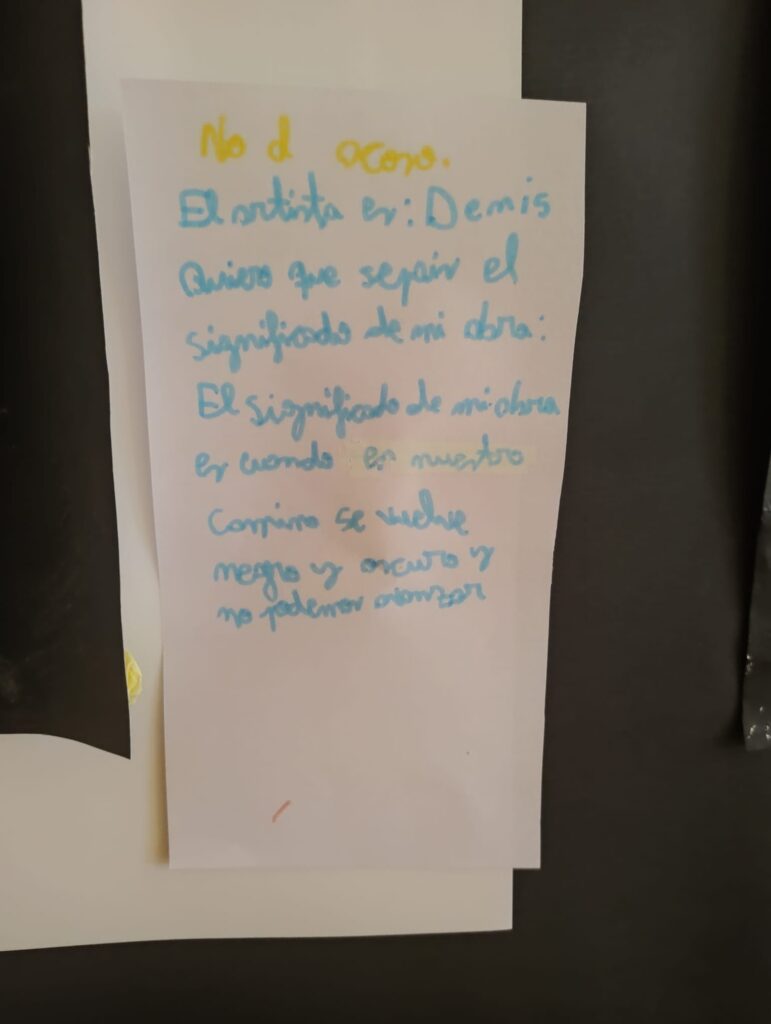 No al acoso.
El artista es: Demis
Quiero que sepáis el
significado de mi obra:
El significado de mi obra
es cuando en nuestro
Camino se vuelve
negro y oscuro y
no podemos avanzar